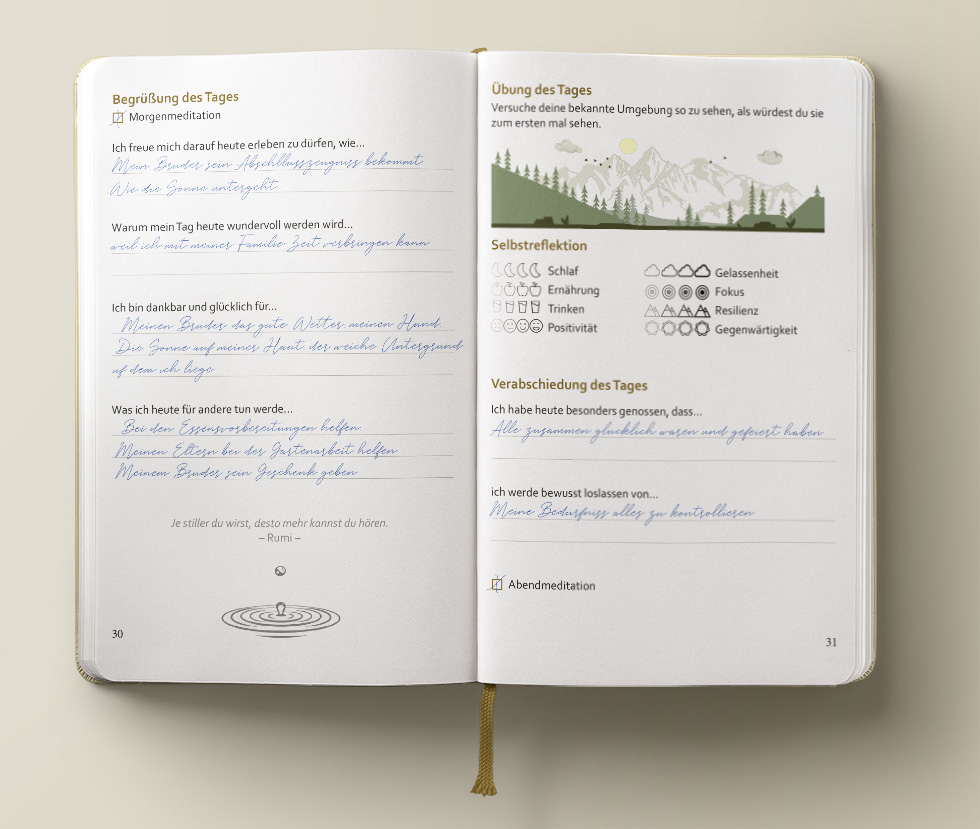 Begrüßung des Tages
Morgenmeditation
Ich freue mich darauf heute erleben zu dürfen, wie...
Mein Bruder sein Abschlusszeugniss bekommt
Wie die Sonne untergeht
Warum mein Tag heute wundervoll werden wird...
weil ich mit meiner Familie Zeit verbringen kann
Ich bin dankbar und glücklich für...
Meinen Bruder das gute Wetter meinen Hund
Die Sonne auf meiner Haut der weiche Untergrund
uf dem ich liege
Was ich heute für andere tun werde...
Bei den Essensvorbereitungen helfen
Meinen Eltern bei der Gartenarbeit helfen
Meinem Bruder sein Geschenk geben
Je stiller du wirst, desto mehr kannst du hören.
– Rumi –
30
Übung des Tages
Versuche deine bekannte Umgebung so zu sehen, als würdest du sie
zum ersten mal sehen.
Selbstreflektion
Schlaf
Ernährung
Trinken
Positivität
Gelassenheit
Fokus
Resilienz
Gegenwärtigkeit
Verabschiedung des Tages
Ich habe heute besonders genossen, dass...
Alle zusammen glücklich waren und gefeiert haben
ich werde bewusst loslassen von...
Meine Bedürfniss alles zu kontrollieren
Abendmeditation
31